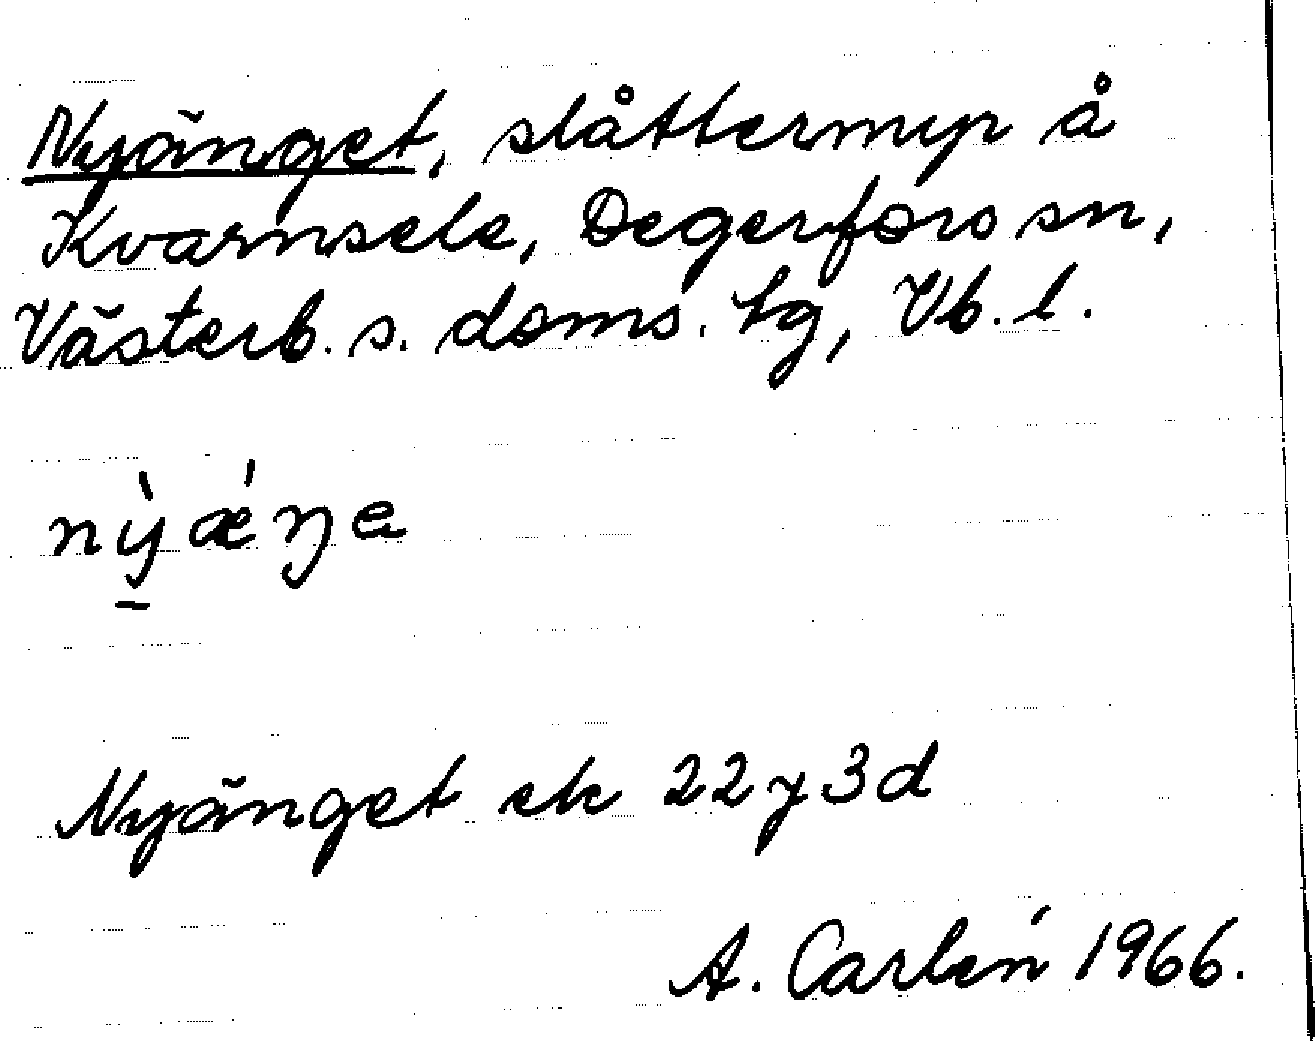 Nyänget, slåttermyr å
Kvarnsele, Degerfors sn,
Västerb. s. doms. tg, Vb. l.
nỳǽŋe
Nyänget ek 22 y 3d
A. Carlén 1966.